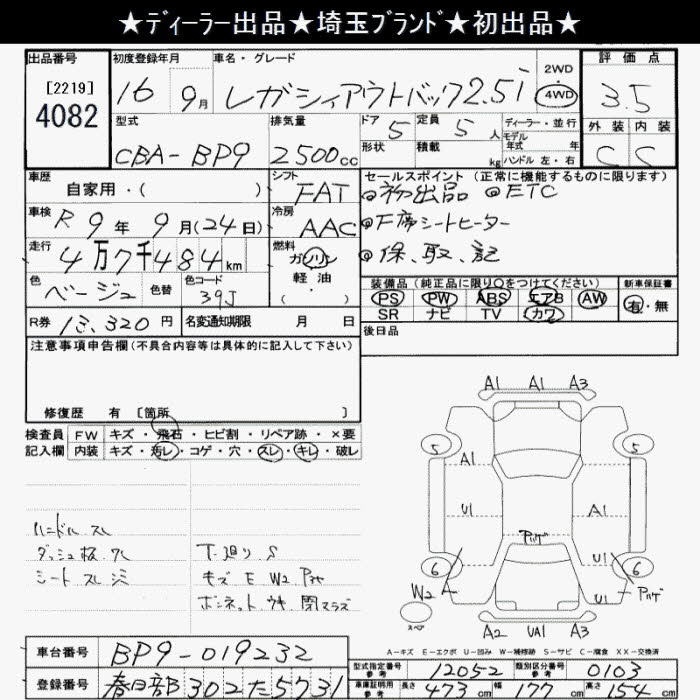 ★ディーラー出品★埼玉ブランド★初出品★
出品番号
[2219]
4082
初度登録年月
16 9月
車名・グレード
レガシィアウトバック2.5i
2WD
・
4WD
評価点
3.5
外装 内装
C C
型式
CBA-BP9
排気量
2500cc
ドア 5
形状
定員 5人
積載 kg
ディーラー・並行
モデル
年式 年
ハンドル 左・右
車歴
自家用・( )
シフト
FAT
車検
R 9年 9月(24日)
冷房
AAC
走行
4万7千484km
燃料
ガソリン
軽油
( ・ )
色
ベージュ
色替
色コード
39J
R券 13,320円
名変通知期限 月 日
セールスポイント (正常に機能するものに限ります)
◎初出品 ◎ETC
◎F席シートヒーター
◎保、取、記
装備品(純正品に限り○をつけてください)
PS PW ABS エアB AW
SR ナビ TV カワ
新車保証書
有・無
後日品
注意事項申告欄(不具合内容等は具体的に記入して下さい)
修復歴 有 [箇所 ]
検査員 FW キズ・飛石・ヒビ割・リペア跡・×要
記入欄 内装 キズ・汚レ・コゲ・穴・スレ・キレ・破レ
ハンドル スレ
シート スレ シミ
キズ E W2
ボンネット ウキ
A1 A1 A3
5 5
A1
U1 A1
U1
6 6
W2
U1
スペア
A2 UA1 A3
A-キズ E-エクボ U-凹み W-補修跡 S-サビ C-腐食 XX-交換済
車台番号 BP9-019232
登録番号 春日部 302 た 5731
型式指定番号 参考 12052
類別区分番号 参考 0103
車庫証明用 参考 長さ 473cm 幅 177cm 高さ 154cm